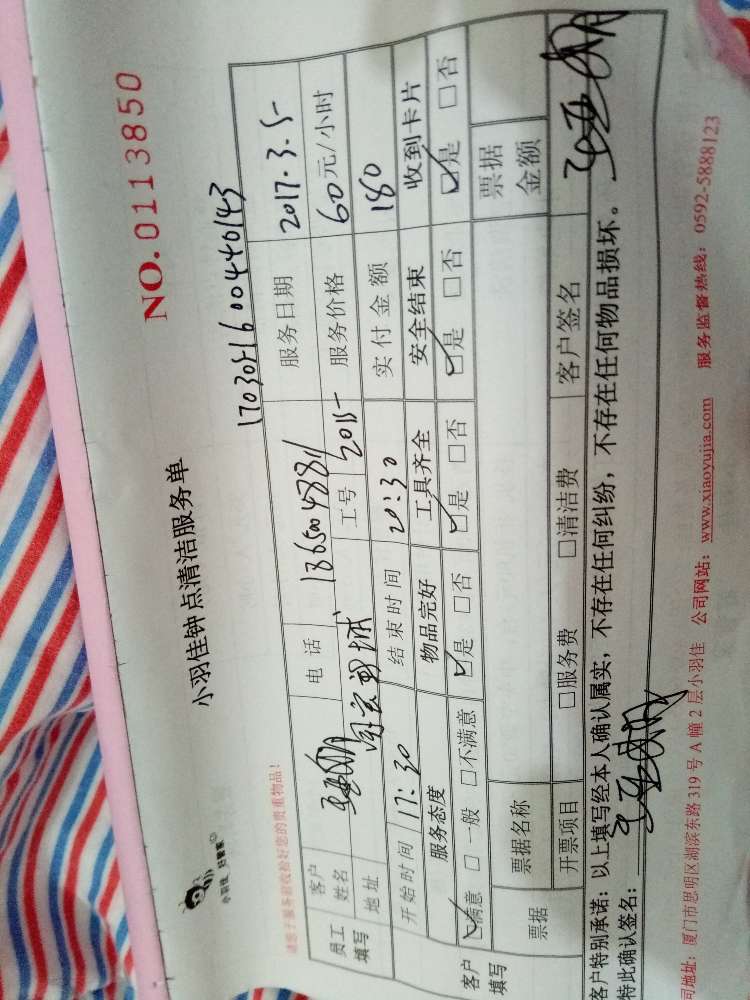 NO.0113850
小羽佳 好管家
小羽佳钟点清洁服务单
请您于服务前收拾好您的贵重物品!
1703051600440143
员工填写 客户姓名 电话 服务日期 2017.3.5
地址 工号 2015 服务价格 60元/小时
开始时间 17:30 结束时间 20:30 实付金额 180
客户填写 服务态度 物品完好 工具齐全 安全结束 收到卡片
☑满意 □一般 □不满意 ☑是 □否 ☑是 □否 ☑是 □否 ☑是 □否
票据 票据名称 票据金额
开票项目 □服务费 □清洁费 客户签名
客户特别承诺：以上填写经本人确认属实，不存在任何纠纷，不存在任何物品损坏。
特此确认签名：
司地址：厦门市思明区湖滨东路319号A幢2层小羽佳 公司网站：www.xiaoyujia.com 服务监督热线：0592-5888123